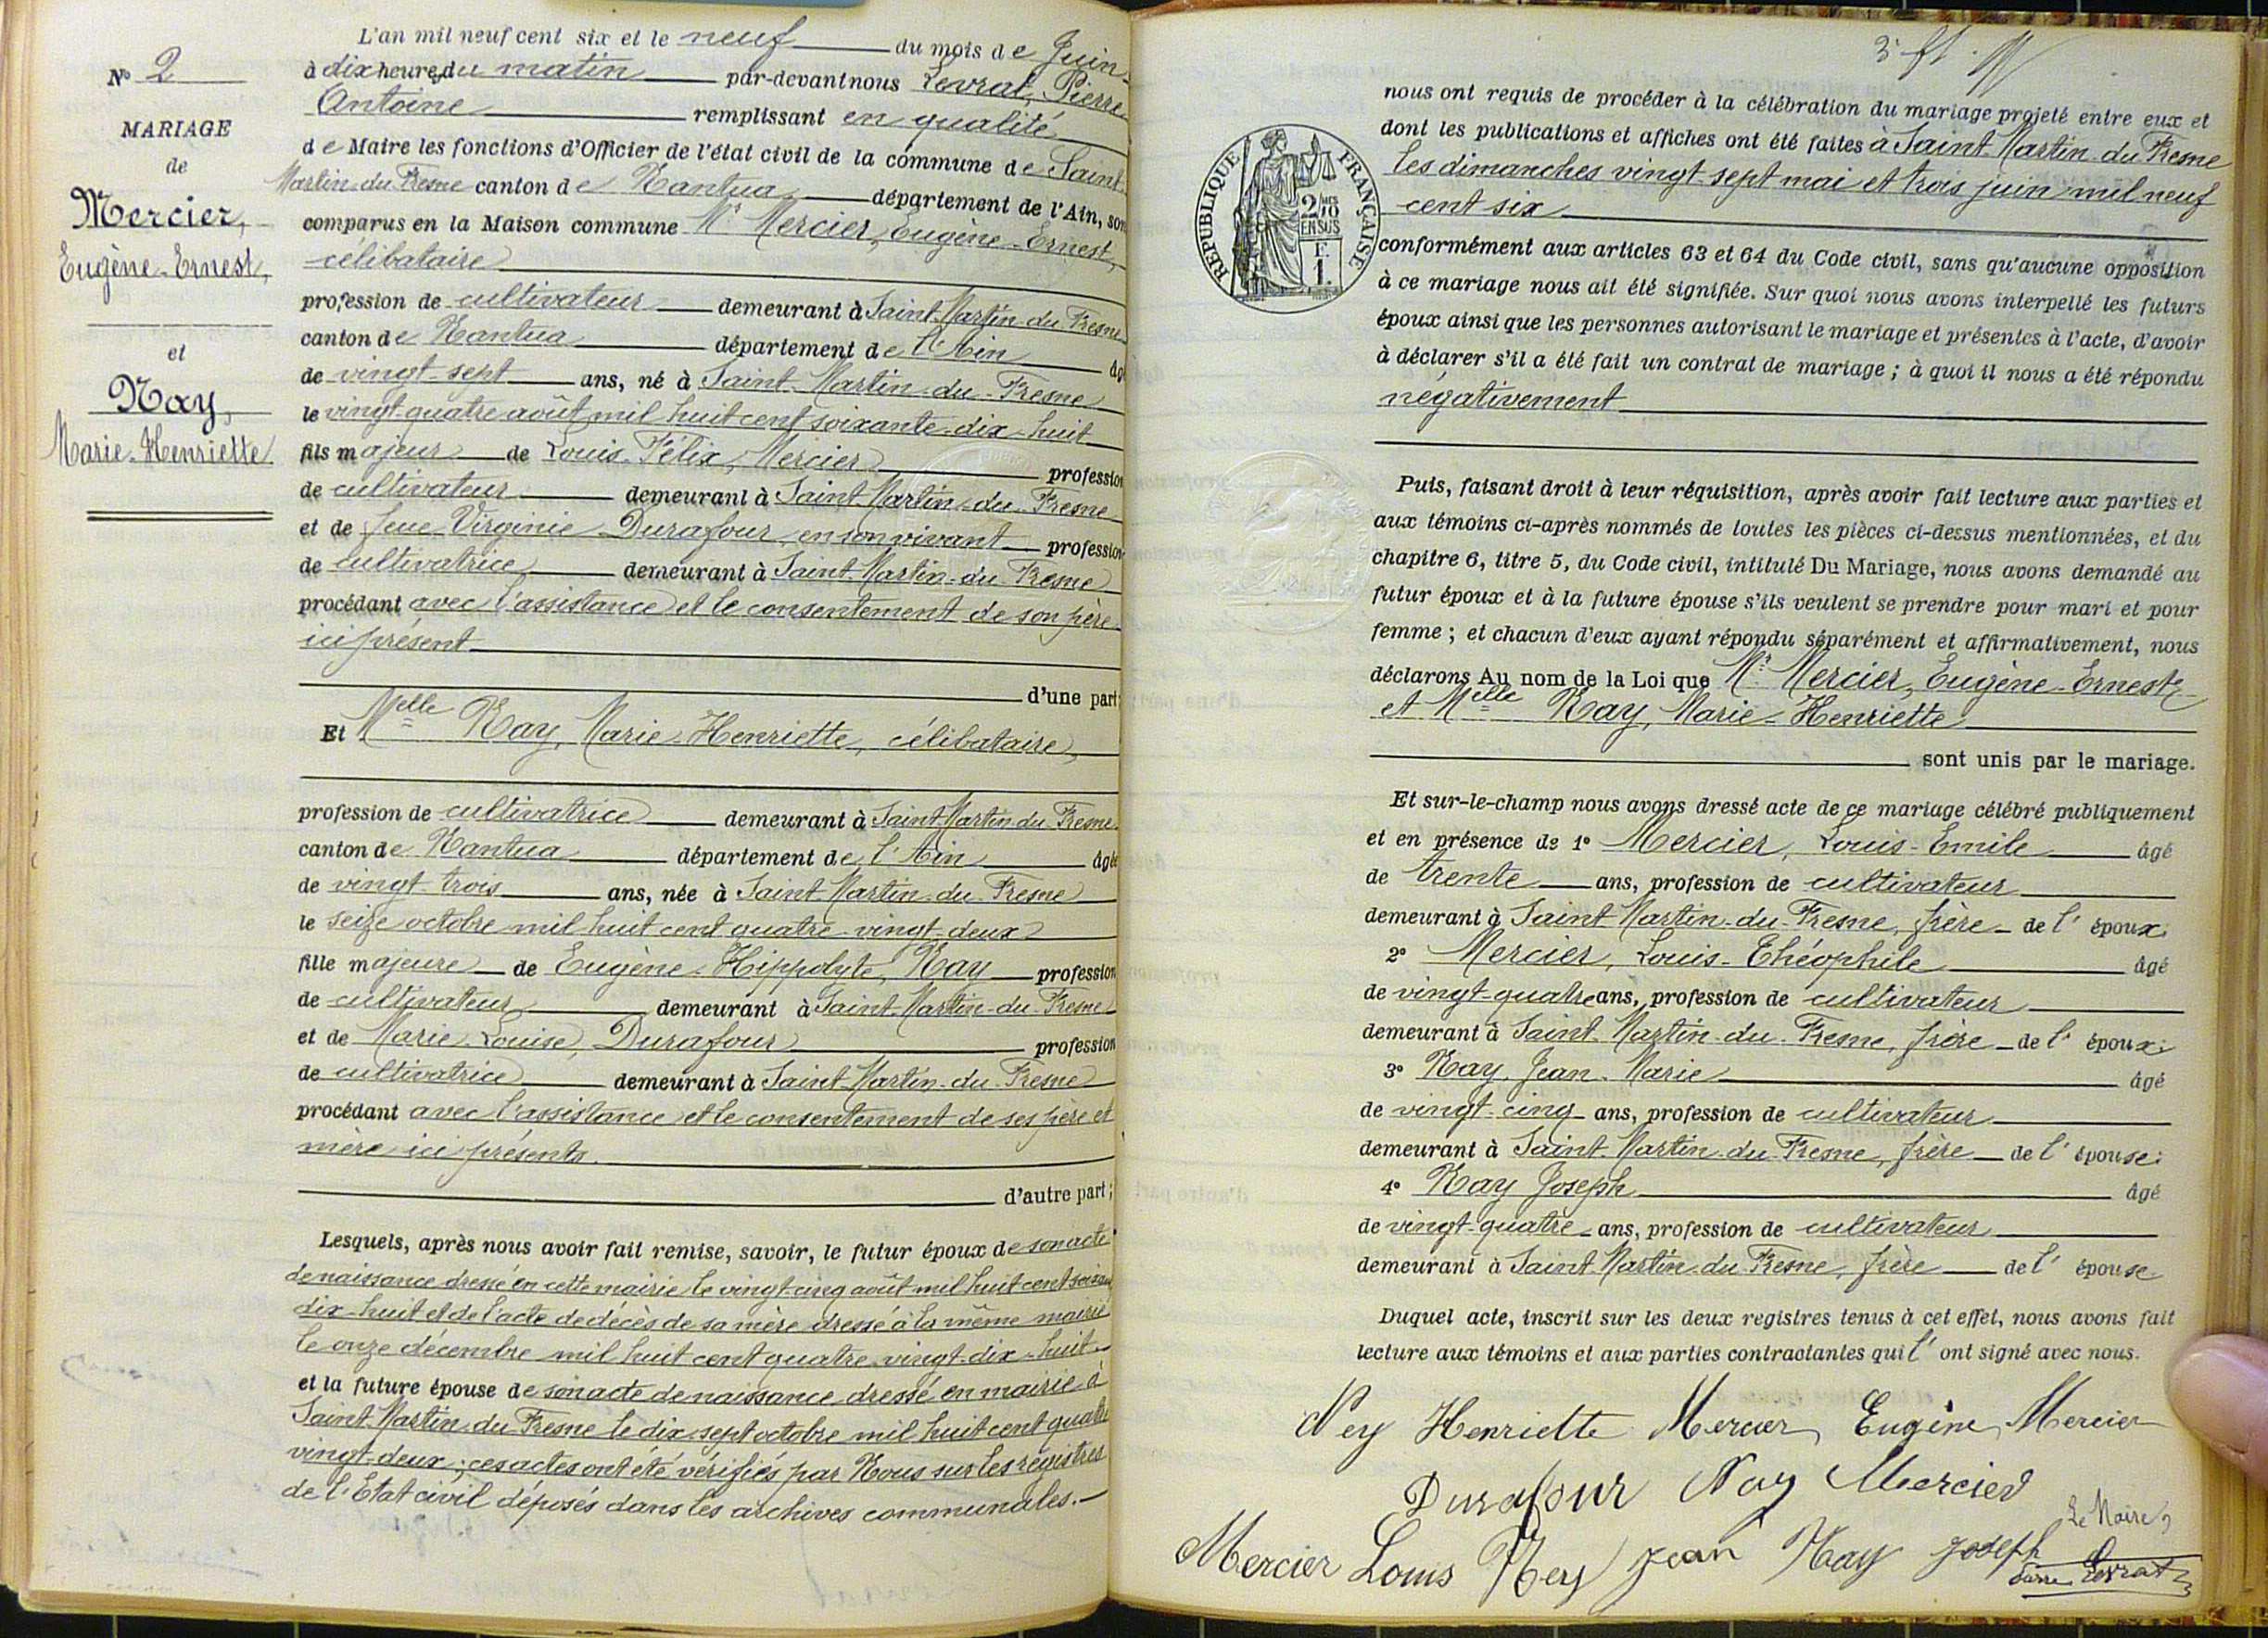 N° 2
MARIAGE
de
Mercier,
Eugène-Ernest,
et
Nay,
Marie-Henriette
L'an mil neuf cent six et le neuf du mois de Juin
à dix heures du matin par-devant nous Levrat, Pierre
Antoine remplissant en qualité
de Maire les fonctions d'Officier de l'état civil de la commune de Saint
Martin-du-Fresne canton de Nantua département de l'Ain, son
comparus en la Maison commune Mr Mercier, Eugène-Ernest,
célibataire
profession de cultivateur demeurant à Saint-Martin-du-Fresne
canton de Nantua département de l'Ain âgé
de vingt-sept ans, né à Saint-Martin-du-Fresne
le vingt quatre août mil huit cent soixante-dix-huit
fils majeur de Louis-Félix, Mercier profession
de cultivateur demeurant à Saint-Martin-du-Fresne
et de feue Virginie Durafour, en son vivant profession
de cultivatrice demeurant à Saint-Martin-du-Fresne
procédant avec l'assistance et le consentement de son père
ici présent
d'une part;
Et Melle Nay, Marie-Henriette, célibataire,
profession de cultivatrice demeurant à Saint-Martin-du-Fresne
canton de Nantua département de l'Ain âgée
de vingt-trois ans, née à Saint-Martin-du-Fresne
le seize octobre mil huit cent quatre-vingt-deux
fille majeure de Eugène-Hippolyte, Nay profession
de cultivateur demeurant à Saint-Martin-du-Fresne
et de Marie-Louise, Durafour profession
de cultivatrice demeurant à Saint-Martin-du-Fresne
procédant avec l'assistance et le consentement de ses père et
mère ici présents
d'autre part;
Lesquels, après nous avoir fait remise, savoir, le futur époux de son acte
de naissance dressé en cette mairie le vingt-cinq août mil huit cent soixan
dix-huit et de l'acte de décès de sa mère dressé à la même mairie
le onze décembre mil huit cent quatre-vingt-dix-huit
et la future épouse de son acte de naissance dressé en mairie à
Saint-Martin-du-Fresne le dix-sept octobre mil huit cent quatre
vingt-deux; ces actes ont été vérifiés par Nous sur les registres
de l'Etat civil déposés dans les archives communales.-
nous ont requis de procéder à la célébration du mariage projeté entre eux et
dont les publications et affiches ont été faites à Saint-Martin-du-Fresne
les dimanches vingt-sept mai et trois juin mil neuf
cent six
RÉPUBLIQUE FRANÇAISE
2/10
EN SUS
F.
1.
conformément aux articles 63 et 64 du Code civil, sans qu'aucune opposition
à ce mariage nous ait été signifiée. Sur quoi nous avons interpellé les futurs
époux ainsi que les personnes autorisant le mariage et présentes à l'acte, d'avoir
à déclarer s'il a été fait un contrat de mariage; à quoi il nous a été répondu
négativement
Puis, faisant droit à leur réquisition, après avoir fait lecture aux parties et
aux témoins ci-après nommés de toutes les pièces ci-dessus mentionnées, et du
chapitre 6, titre 5, du Code civil, intitulé Du Mariage, nous avons demandé au
futur époux et à la future épouse s'ils veulent se prendre pour mari et pour
femme; et chacun d'eux ayant répondu séparément et affirmativement, nous
déclarons Au nom de la Loi que Mr Mercier, Eugène-Ernest
et Melle Nay, Marie-Henriette
sont unis par le mariage.
Et sur-le-champ nous avons dressé acte de ce mariage célébré publiquement
et en présence de 1° Mercier, Louis-Emile âgé
de trente ans, profession de cultivateur
demeurant à Saint-Martin-du-Fresne, frère de l'époux.
2° Mercier, Louis-Théophile âgé
de vingt-quatre ans, profession de cultivateur
demeurant à Saint-Martin-du-Fresne, frère de l'époux;
3° Nay, Jean-Marie âgé
de vingt-cinq ans, profession de cultivateur
demeurant à Saint-Martin-du-Fresne, frère de l'épouse;
4° Nay Joseph âgé
de vingt-quatre ans, profession de cultivateur
demeurant à Saint-Martin-du-Fresne, frère de l'épouse
Duquel acte, inscrit sur les deux registres tenus à cet effet, nous avons fait
lecture aux témoins et aux parties contractantes qui l'ont signé avec nous.
Ney Henriette Mercier Eugène Mercier
Durafour Nay Mercier
Le Maire,
Mercier Louis Ney Jean Nay Joseph
Levrat